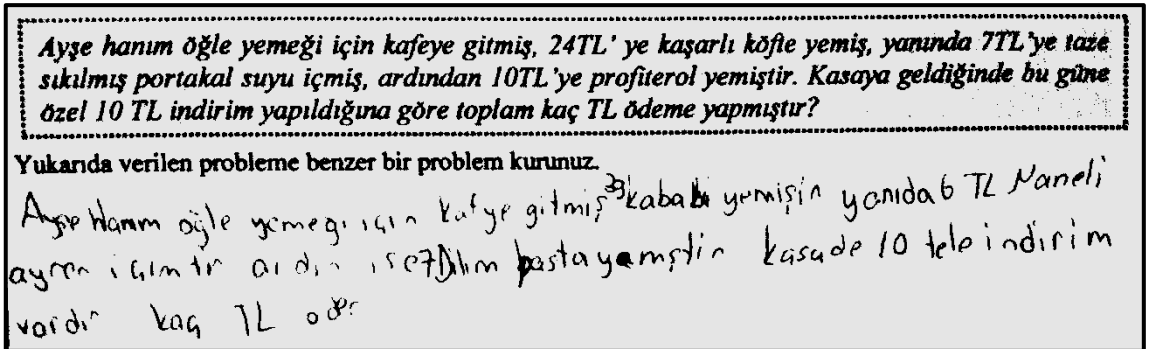 Ayşe hanım öğle yemeği için kafeye gitmiş, 24TL' ye kaşarlı köfte yemiş, yanında 7TL'ye taze
sıkılmış portakal suyu içmiş, ardından 10TL'ye profiterol yemiştir. Kasaya geldiğinde bu güne
özel 10 TL indirim yapıldığına göre toplam kaç TL ödeme yapmıştır?
Yukarıda verilen probleme benzer bir problem kurunuz.
Ayşe Hanım öğle yemegi için kafye gitmiş yemişin yanıda 6 TL Naneli
ayren pasta yemştir kasade 10 tele indirim
vardır kaç TL öder